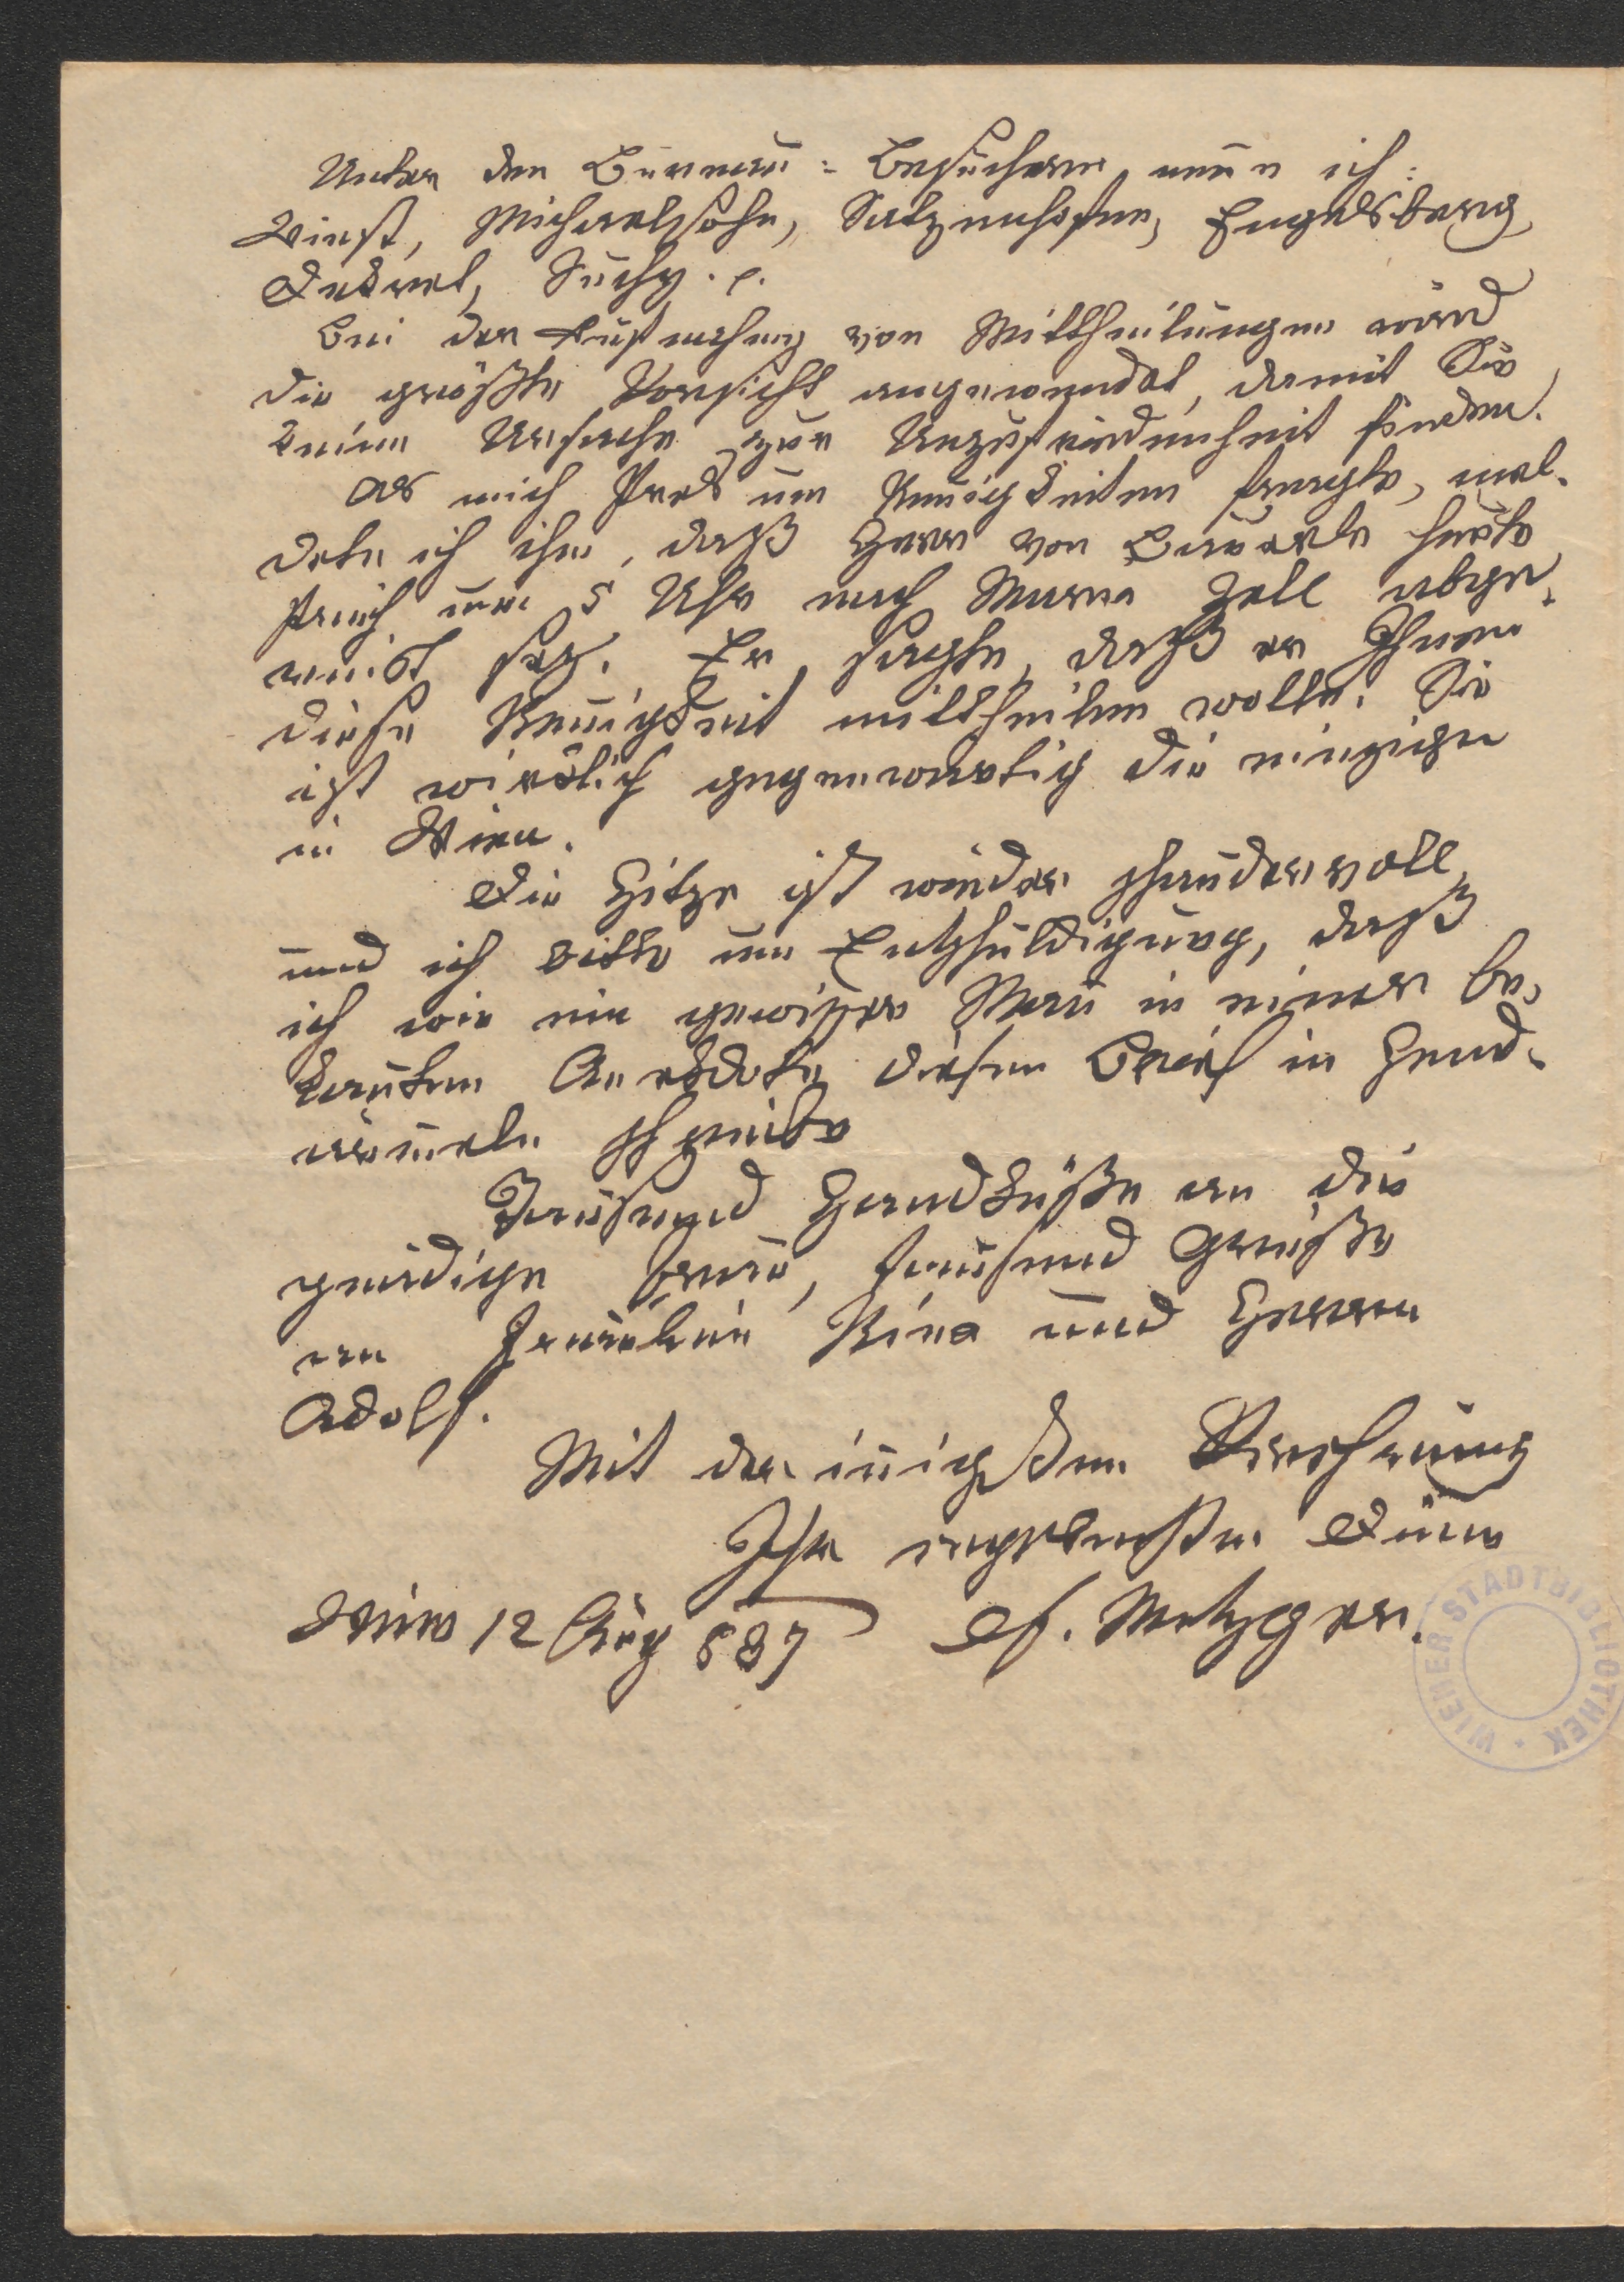 Unter den Bureau = Besuchern nenne ich:
Wiest, Michaelsohn, Satzenhofen, Engelsberg,
Dedret, Suchy. c.
Bei der Aufnahme von Mittheilungen wird
die größte Vorsicht angewendet, damit Sie
keine Ursache zur Unzufriedenheit finden.
Als mich um Neuigkeiten fragte, mel-
dete ich ihm, daß Herr von Bäuerle heute
früh um 5 Uhr nach Maria Zell abge-
reist sey. Er sagte, daß er Ihnen
diese Neuigkeit mittheilen wolle. Sie
ist wirklich gegenwärtig die einzige
in Wien.
Die Hitze ist wieder schaudervoll
und ich bitte um Entschuldigung, daß
ich wie ein gewißer Mann in einer be-
kannten Anekdote diesen Brief in Hemd-
ärmeln schreibe
Tausend Handküße an die
gnädige Frau, tausend Grüße
an Fräulein Nina und Herrn
Adolf.
Mit der innigsten Verehrung
Ihr ergebenster Diener
Wien 12 Aug 837 Metzger.
WIENER STADTBIBLIOTHEK